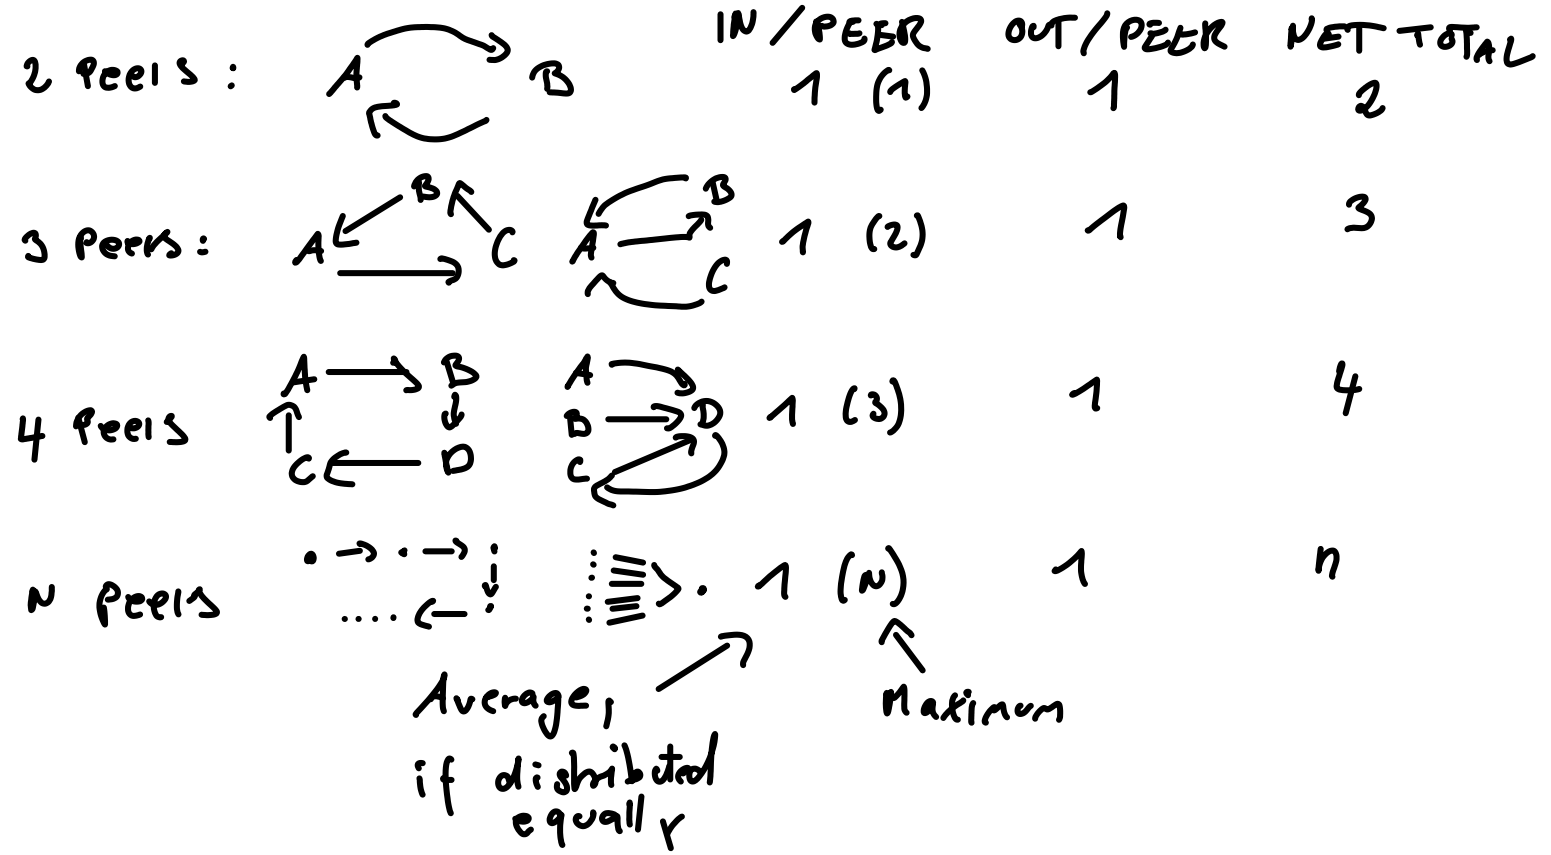 IN / PEER OUT / PEER NET TOTAL
2 Peers : A B 1 (1) 1 2
3 Peers : A B C A B C 1 (2) 1 3
4 Peers A B C D A B C D 1 (3) 1 4
N Peers 1 (N) 1 n
Average, Maximum
if distributed
equally